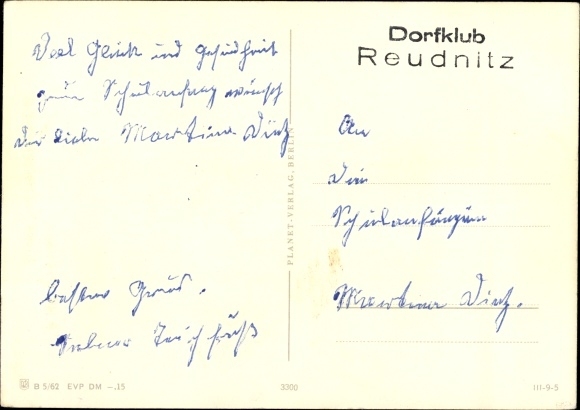 Viel Glück und Gesundheit
zum Schulanfang wünscht
Dir liebe Martina Dietz
besten Gruß.
Dorfklub
Reudnitz
An
Die
Schulanfängerin
Martina Dietz.
PLANET-VERLAG, BERLIN
B 5/62 EVP DM –.15
3300
III-9-5